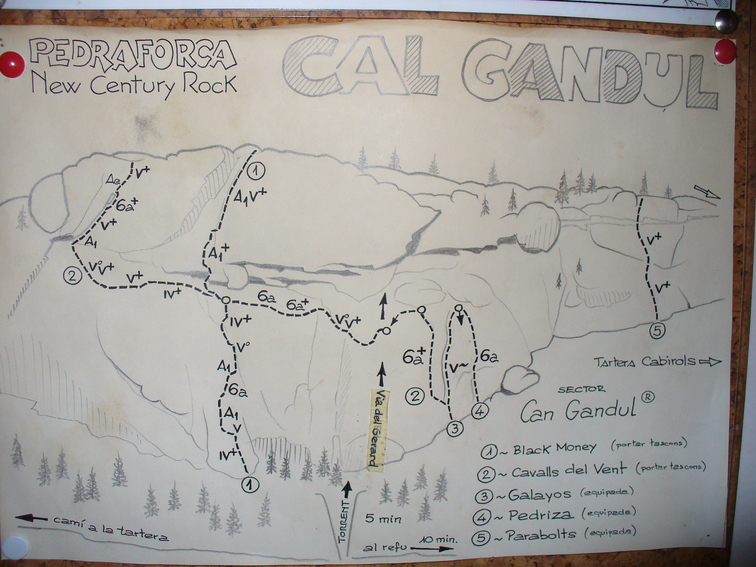 PEDRAFORCA
New Century Rock
CAL GANDUL
V+
Ae
6a+
V+
A1
2
V° V+
V+
IV+
1
A1 V+
A1+
6a
6a+
V° V+
IV+
V°
A1
6a
A1
V
IV+
1
6a+
2
V~
3
6a
4
V+
V+
5
Via del Gerard
Tartera Cabirols
SECTOR
Can Gandul ®
1 ~ Black Money (portar tascons)
2 ~ Cavalls del Vent (portar tascons)
3 ~ Galayos (equipada)
4 ~ Pedriza (equipada)
5 ~ Parabolts (equipada)
camí a la tartera
TORRENT
5 min
al refu 10 min.